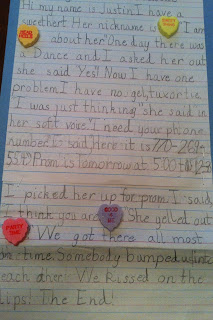 Hi my name is Justin I have a
swethert Her nickname is I am
about her" One day there was
a Dance and I asked her out
she said Yes! Now I have one
problem I have no gel, tuxortie.
I was just thinking" she said in
her soft voice" I need your phone
number to sad Here it is 770-269-
Prom is tomorrow at 5:00
I picked her up for prom. I said
I think you are She yelled out
We got there all most
on time. Somebody bamped us into
each other! We Kissed on the
Lips! The End!
PARTY TIME
GOOD